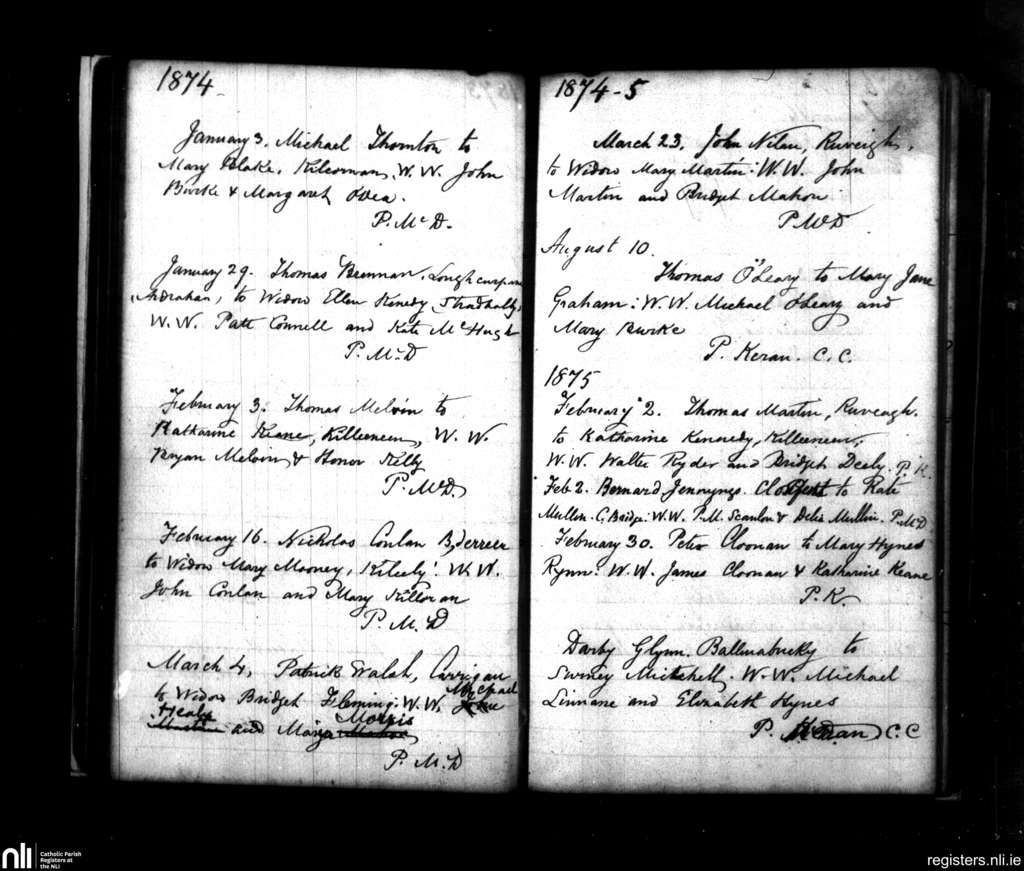 1874
January 3. Michael Thornton to
Mary Blake, Kilcornan, W.W. John
Burke & Margaret O'Dea.
P. McD.
January 29. Thomas Brennan,
Ardrahan, to Widow Ellen Kenedy, Stradbally
W.W. Patt Connell and Kate McHugh
P. McD
February 3. Thomas Melvin to
Katharine Keane, Killeeneen, W.W.
Bryan Melvin & Honor Kelly
P. McD.
February 16. Nicholas Conlan
to Widow Mary Mooney, Kileely: W.W.
John Conlan and Mary Killoran
P. McD
March 4, Patrick Walsh, Carrigan
to Widow Bridget Fleming: W.W. Michael
Healy and Maria Morris
P. McD
1874-5
March 23, John Nilan, Ruveigh,
to Widow Mary Martin: W.W. John
Martin and Bridget Mahon
P. McD
August 10.
Thomas O'Leary to Mary Jane
Graham: W.W. Michael O'Leary and
Mary Burke
P. Keran. C.C.
1875
February 2. Thomas Martin, Ruveagh.
to Katharine Kennedy, Killeeneen,
W.W. Walter Ryder and Bridget Deely. P.K.
Feb 2. Bernard Jennyngs. to Kate
Mullen. C. Bridge: W.W. P.M. Scanlon & Delia Mullin. P. McD
February 30. Peter Cloonan to Mary Hynes
Rynn: W.W. James Cloonan & Katharine Keane
P.K.
Darby Glynn, Ballinabucky to
Mitchell. W.W. Michael
Linnane and Elizabeth Hynes
P. Keran C.C
nli
Catholic Parish
Registers at
the NLI
registers.nli.ie